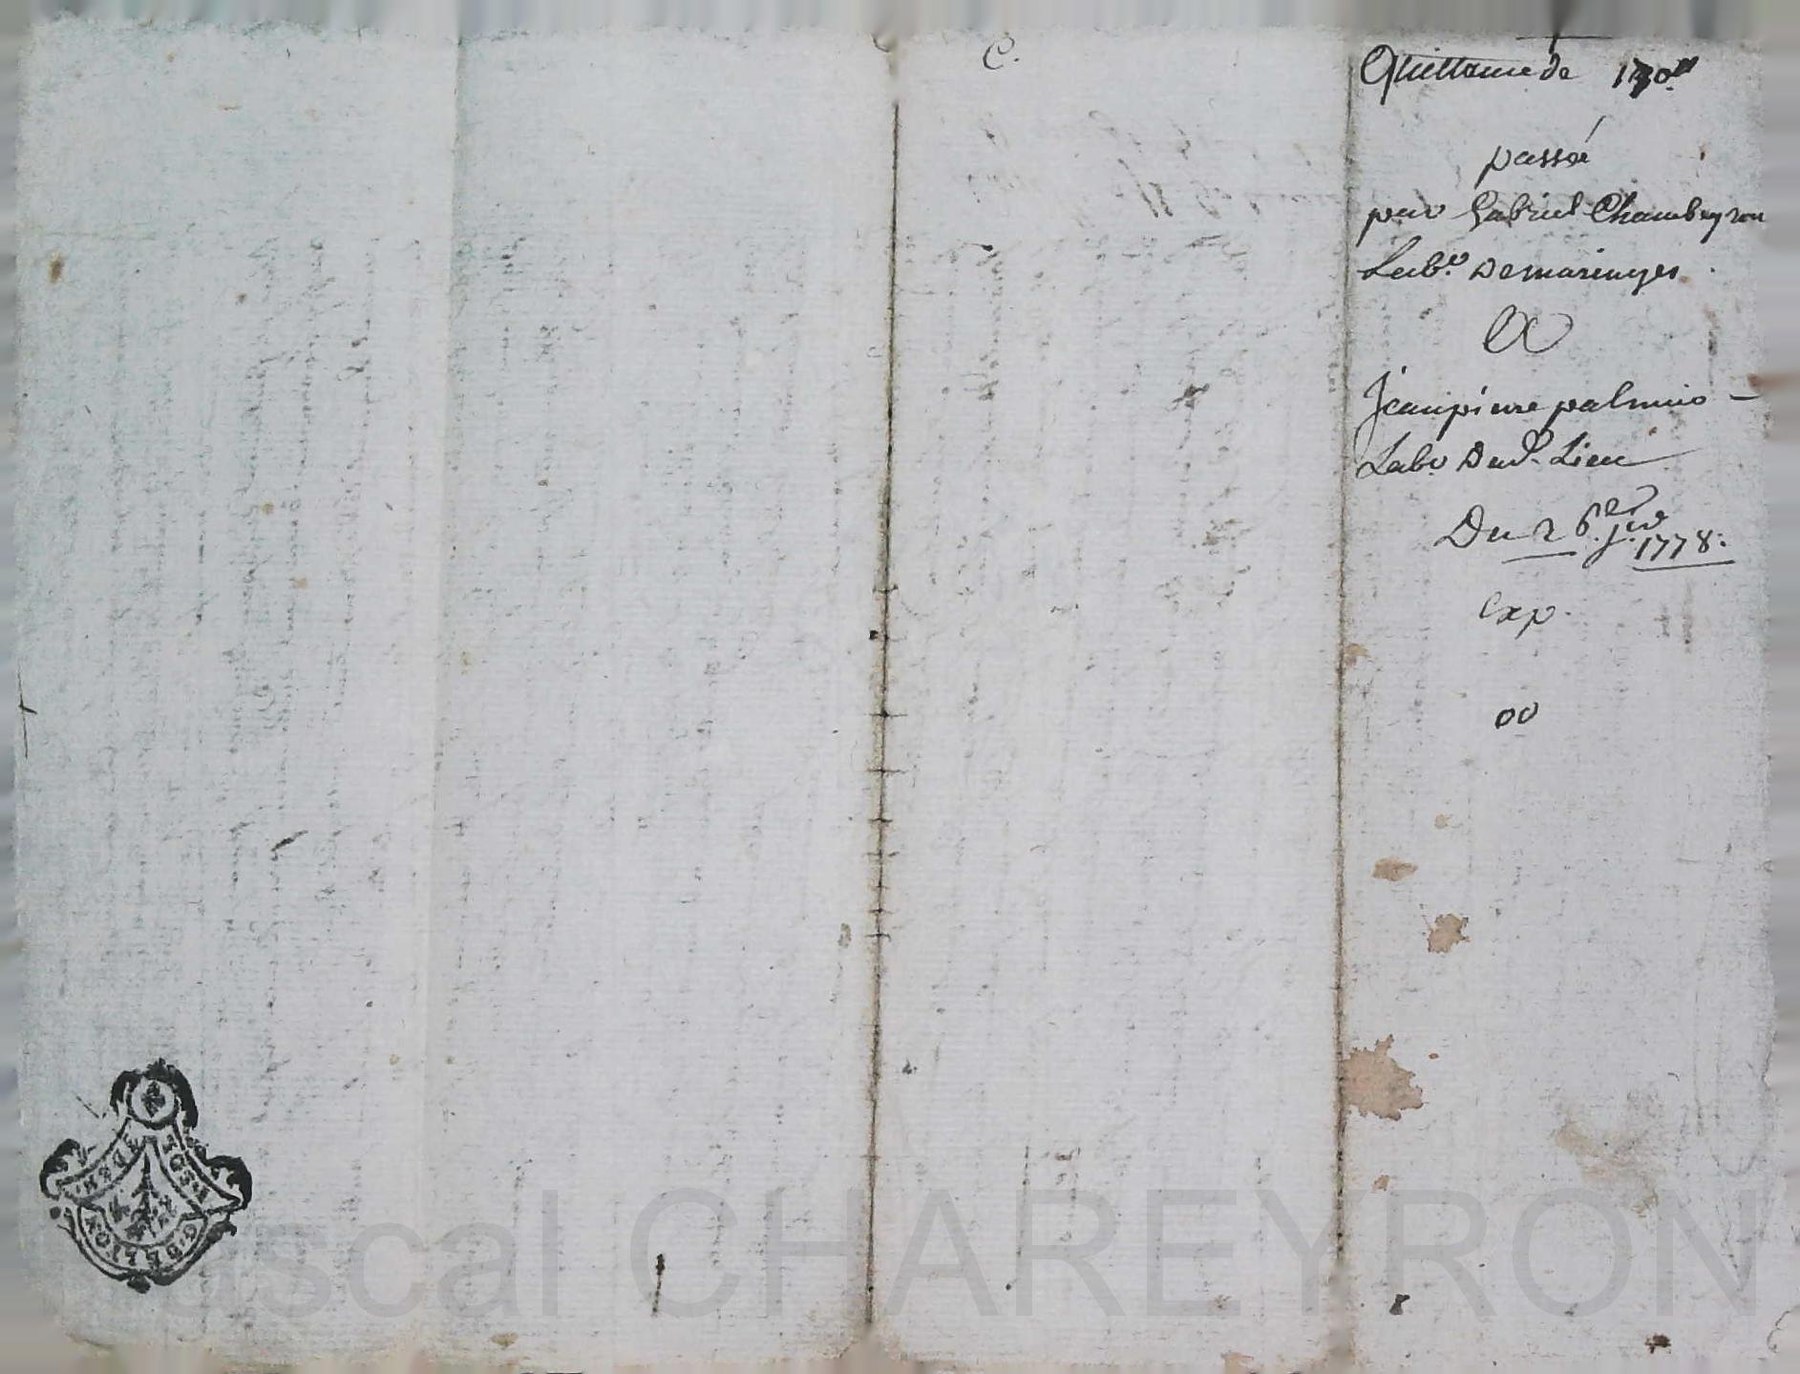 C.
Quittance de 130ᵗᵗ
passée
par Gabriel Chambeyron
Labr. Demaringes
A
Jeanpierre palmier
Labr Dud. Lieu
Du 26. 1778.
Exp.
00
G. DE LYON
Pascal CHAREYRON